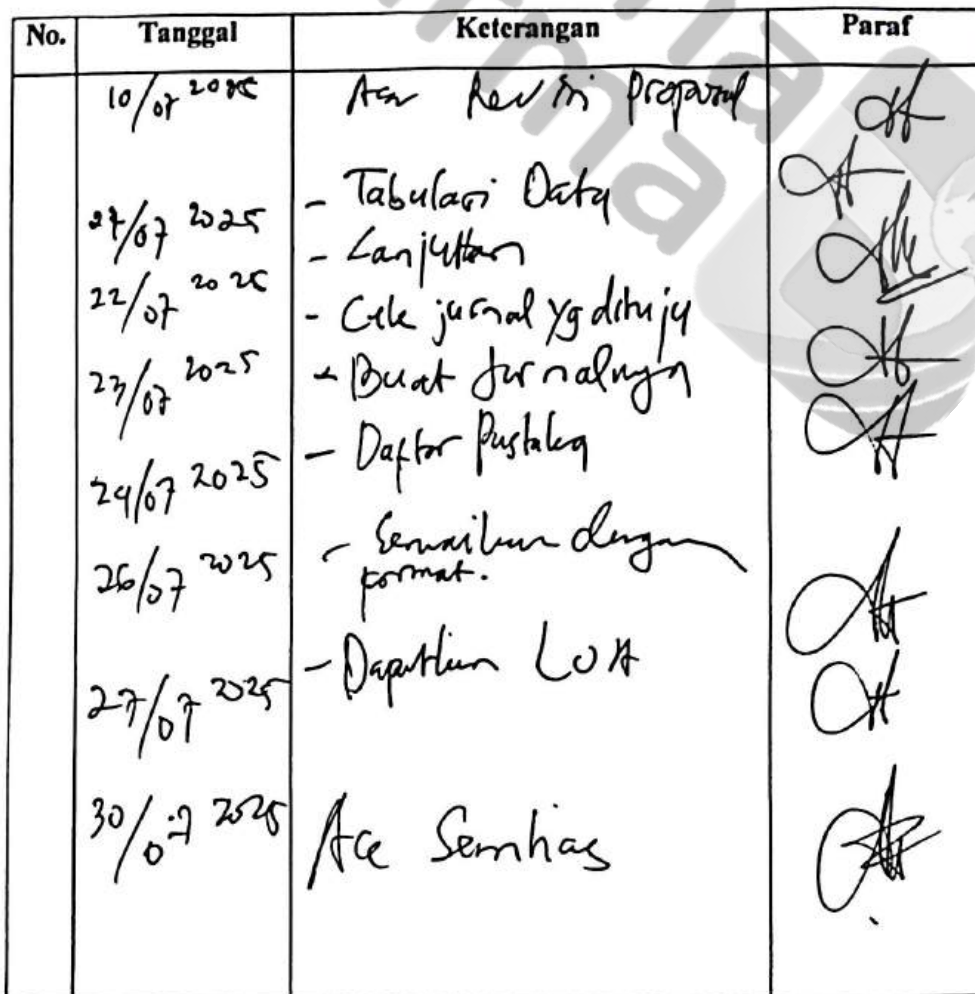 No. Tanggal Keterangan Paraf
10/07 2025 Acc Revisi Proposal
- Tabulasi Data
21/07 2025
- Lanjutkan
22/07 2025
- Cek jurnal yg dituju
23/07 2025
- Buat Jurnalnya
- Daftar Pustaka
24/07 2025
- Sesuaikan dengan
format.
26/07 2025
- Dapatkan LOA
27/07 2025
30/07 2025 Acc Semhas